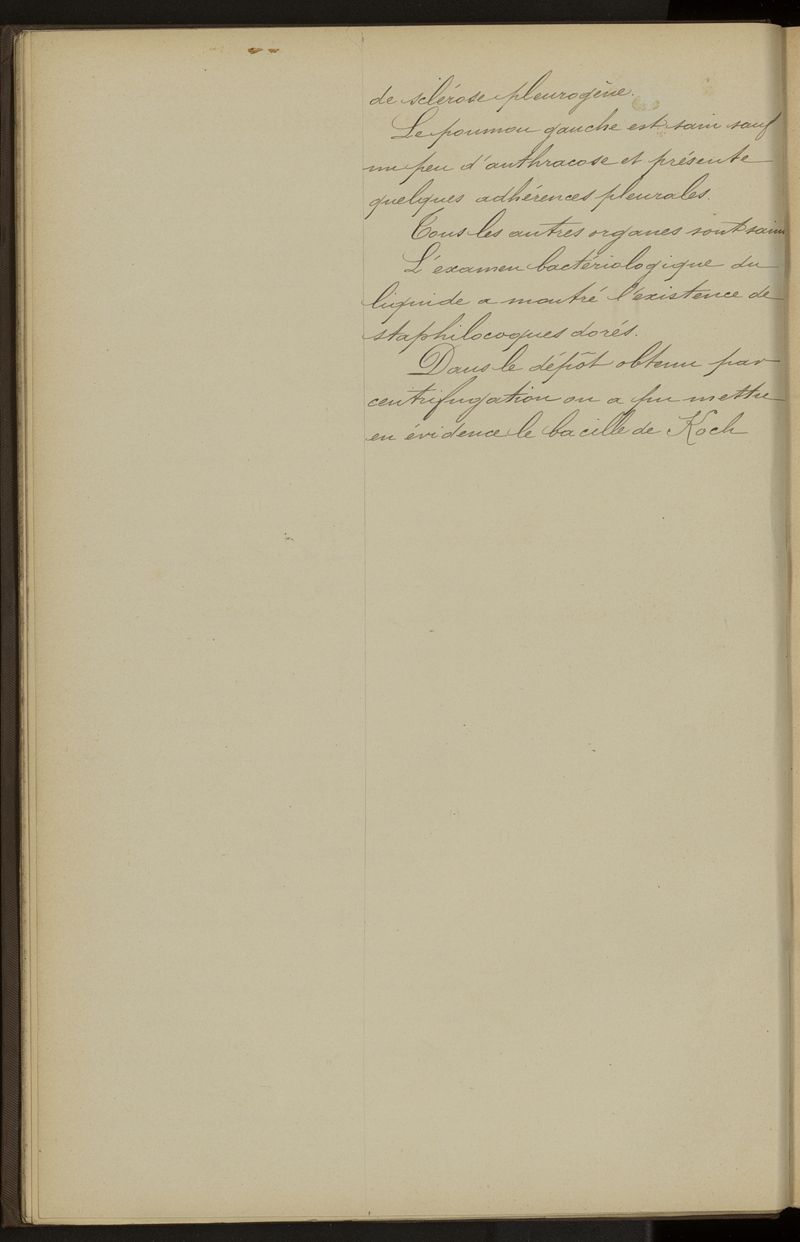 de sclérose pleurogène.
Le poumon gauche est sain sauf
un peu d'anthracose et présente
quelques adhérences pleurales.
Tous les autres organes sont sains
L'examen bactériologique du
liquide a montré l'existence de
staphilocoques dorés.
Dans le dépôt obtenu par
centrifugation on a pu mettre
en évidence le bacille de Koch